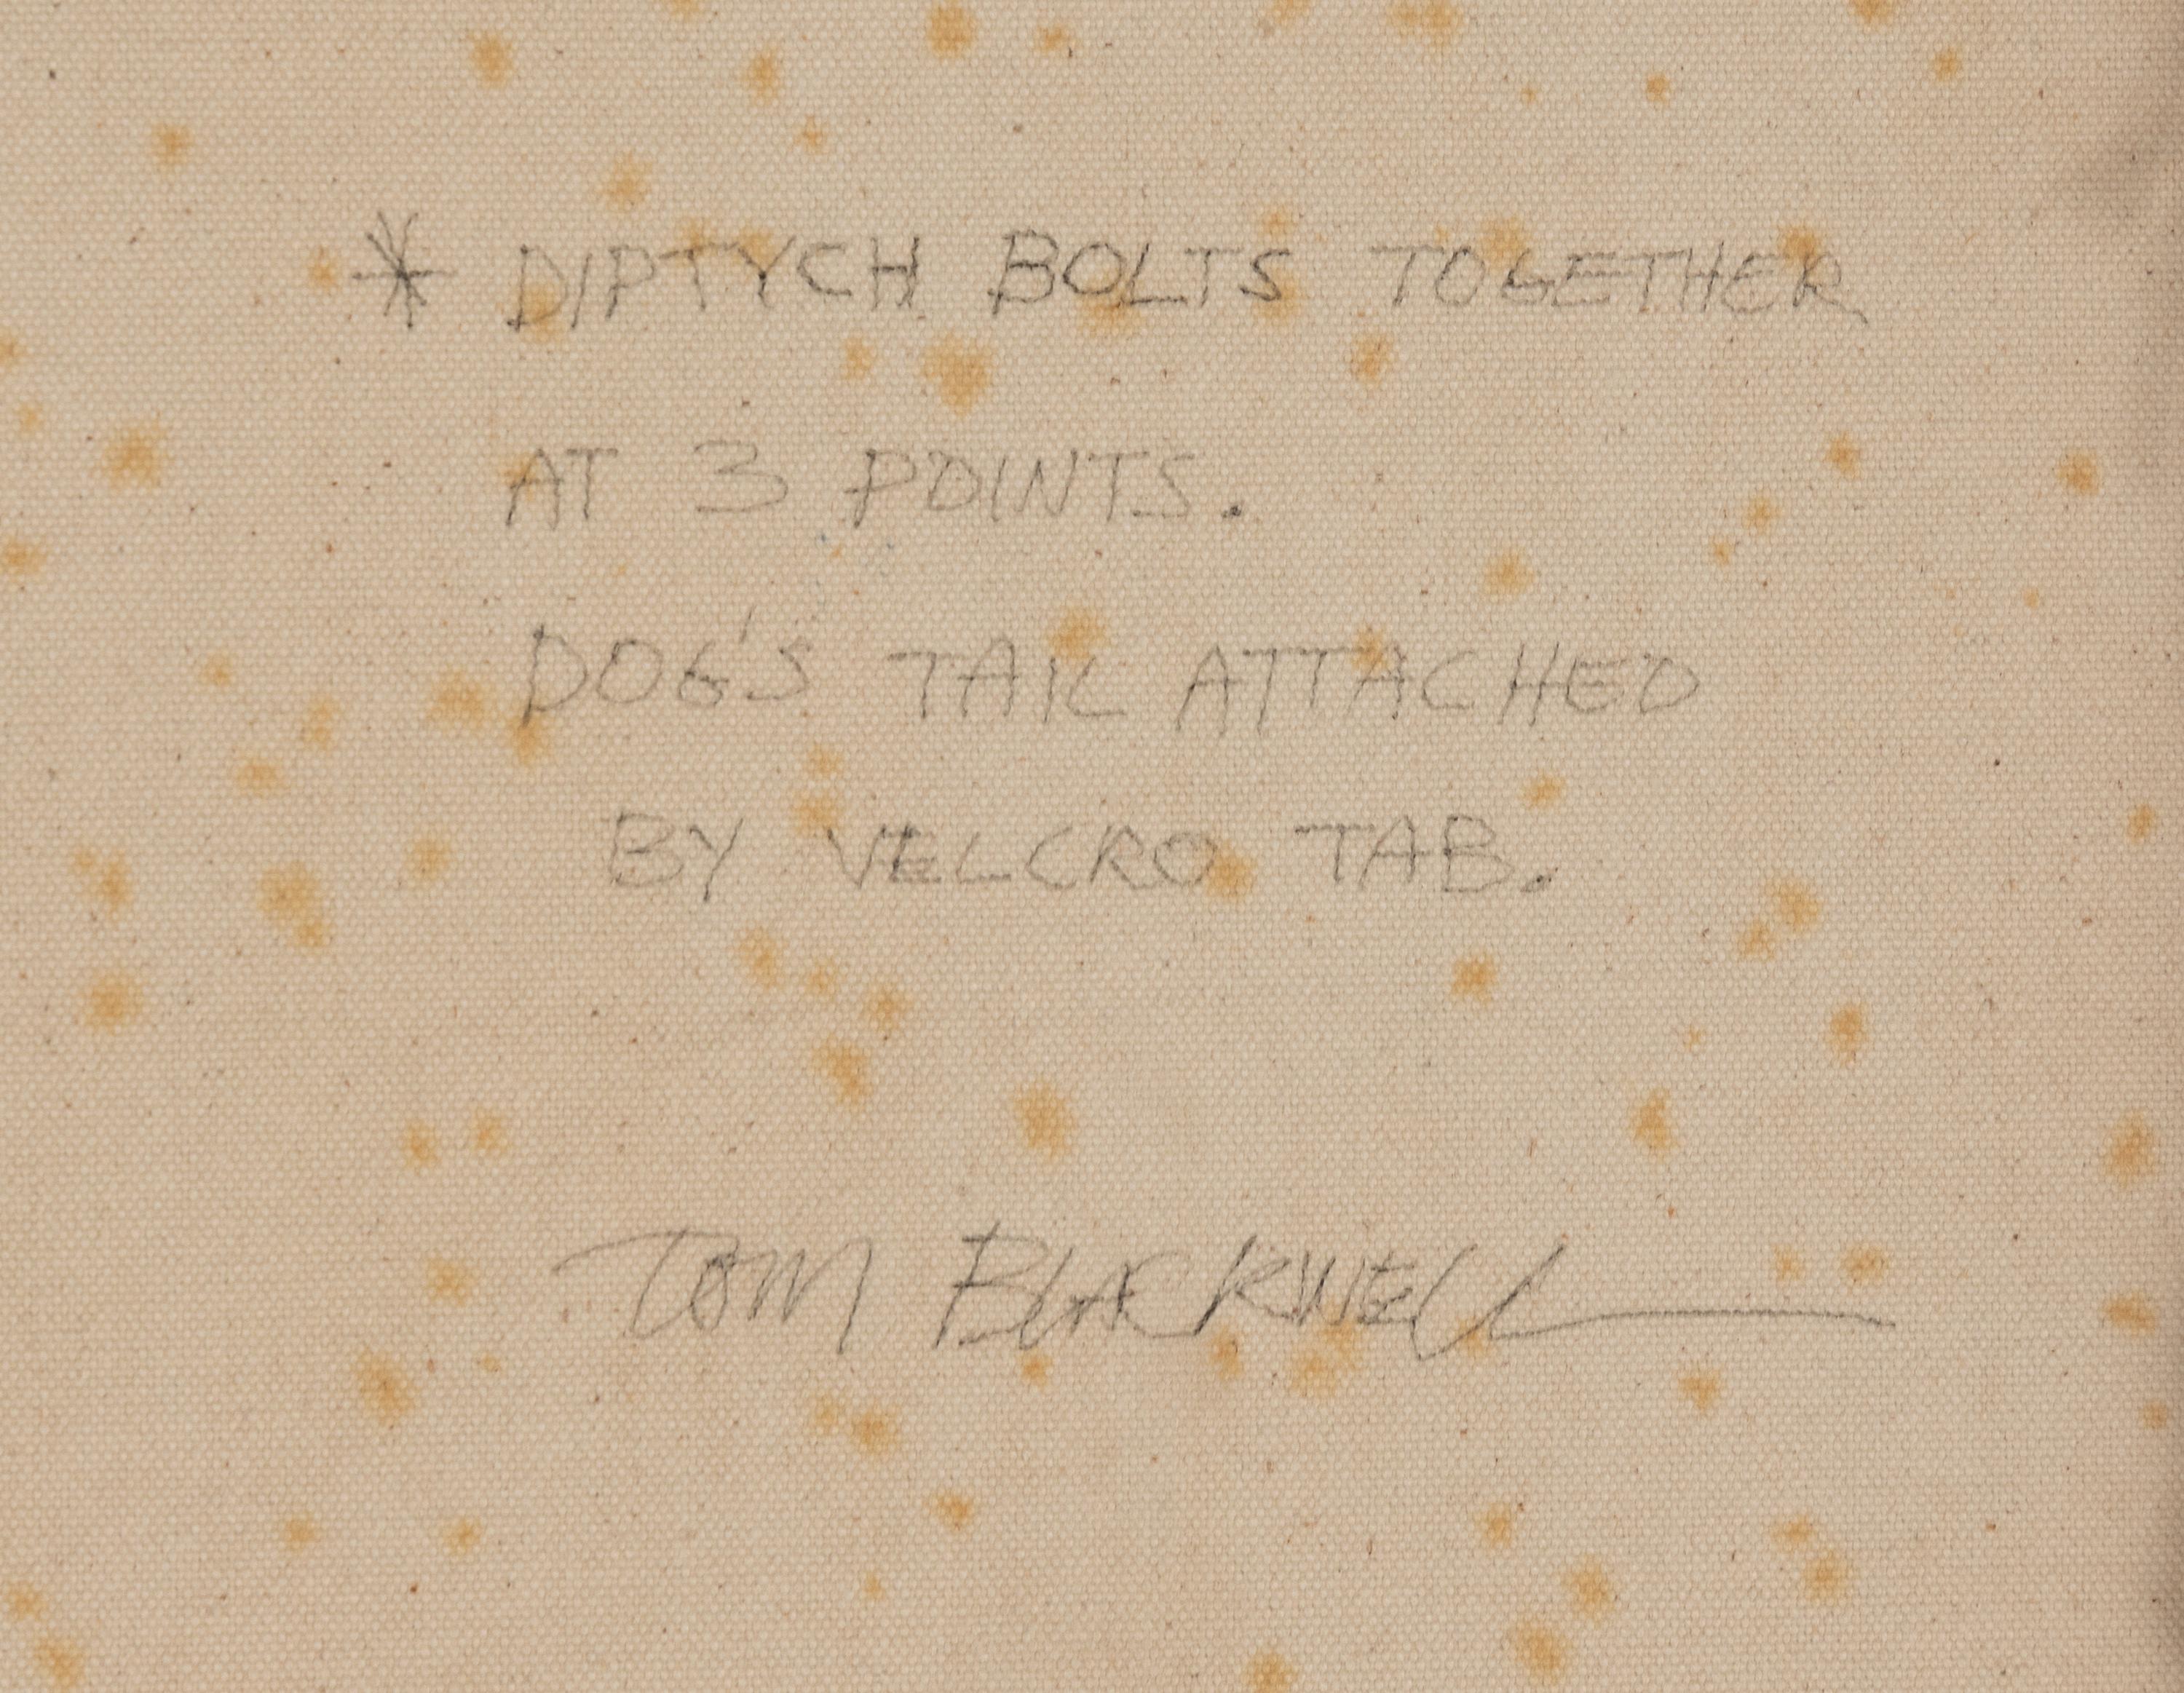 * DIPTYCH BOLTS TOGETHER
AT 3 POINTS.
DOG'S TAIL ATTACHED
BY VELCRO TAB.
TOM BLACKWELL